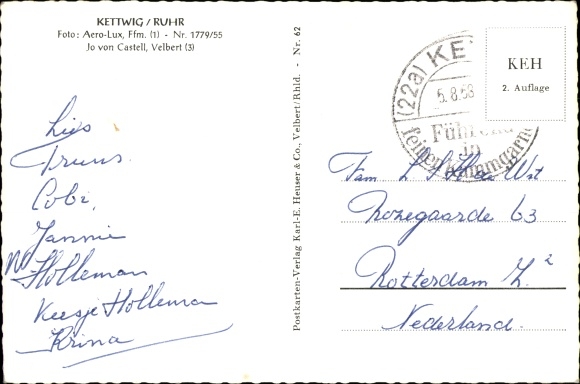 KETTWIG / RUHR
Foto: Aero-Lux, Ffm. (1) - Nr. 1779/55
Jo von Castell, Velbert (3)
Lies
Truus.
Cobi,
Jannie
Holleman
Keesje Holleman
Krina
Postkarten-Verlag Karl-E. Heuser & Co., Velbert/Rhld. - Nr. 62
(22a) KE
5.8.58
Führend
in
feinen Kammgarne
KEH
2. Auflage
Fam L
Rozegaarde 63
Rotterdam Z.²
Nederland.